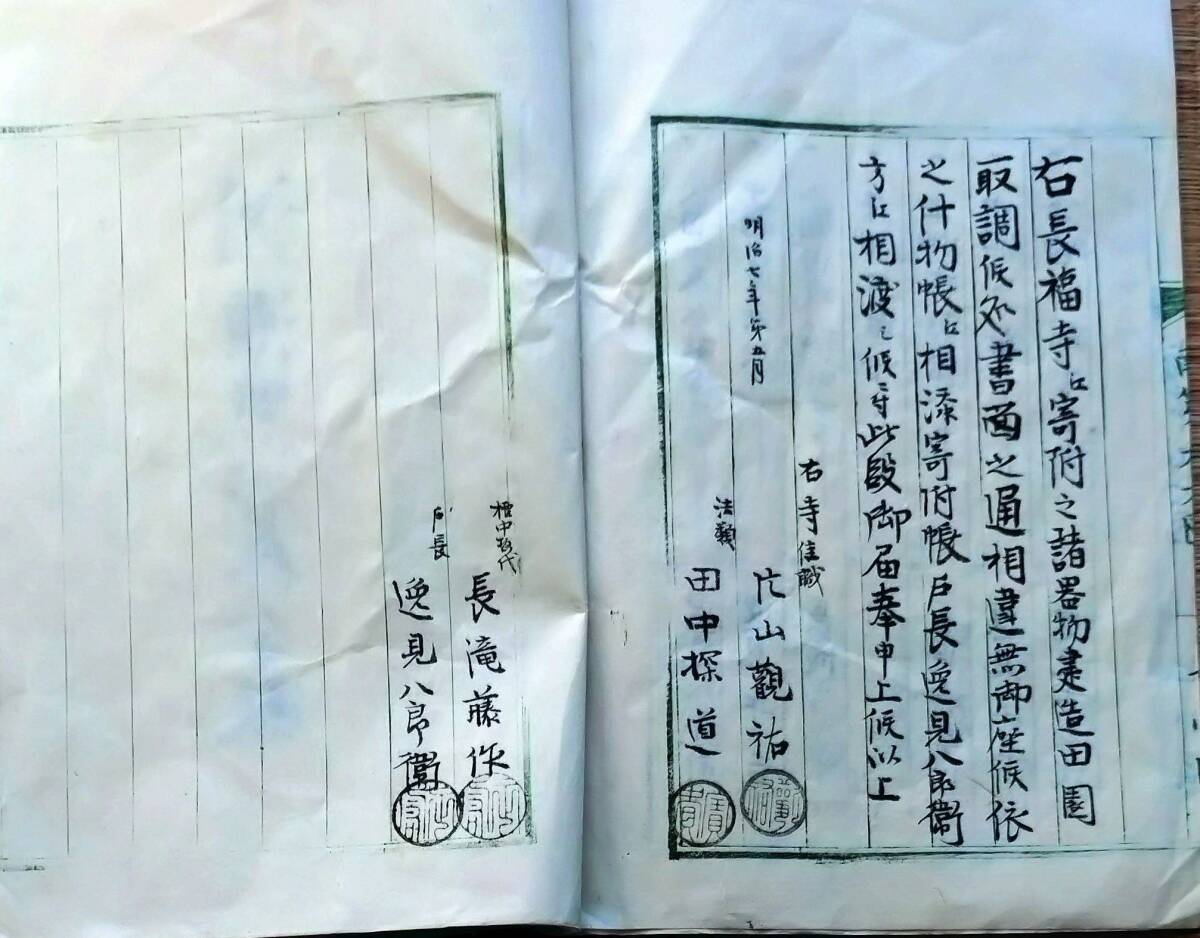 右長福寺江寄附之諸器物建造田園
取調候処書面之通相違無御座候依
之什物帳江相添寄附帳戸長逸見八郎衛
方江相渡シ候ニ付此段御届奉申上候以上
明治七年第五月
右寺住職
片山觀祐
法類
田中探道
檀中惣代
長滝藤作
戸長
逸見八郎衛